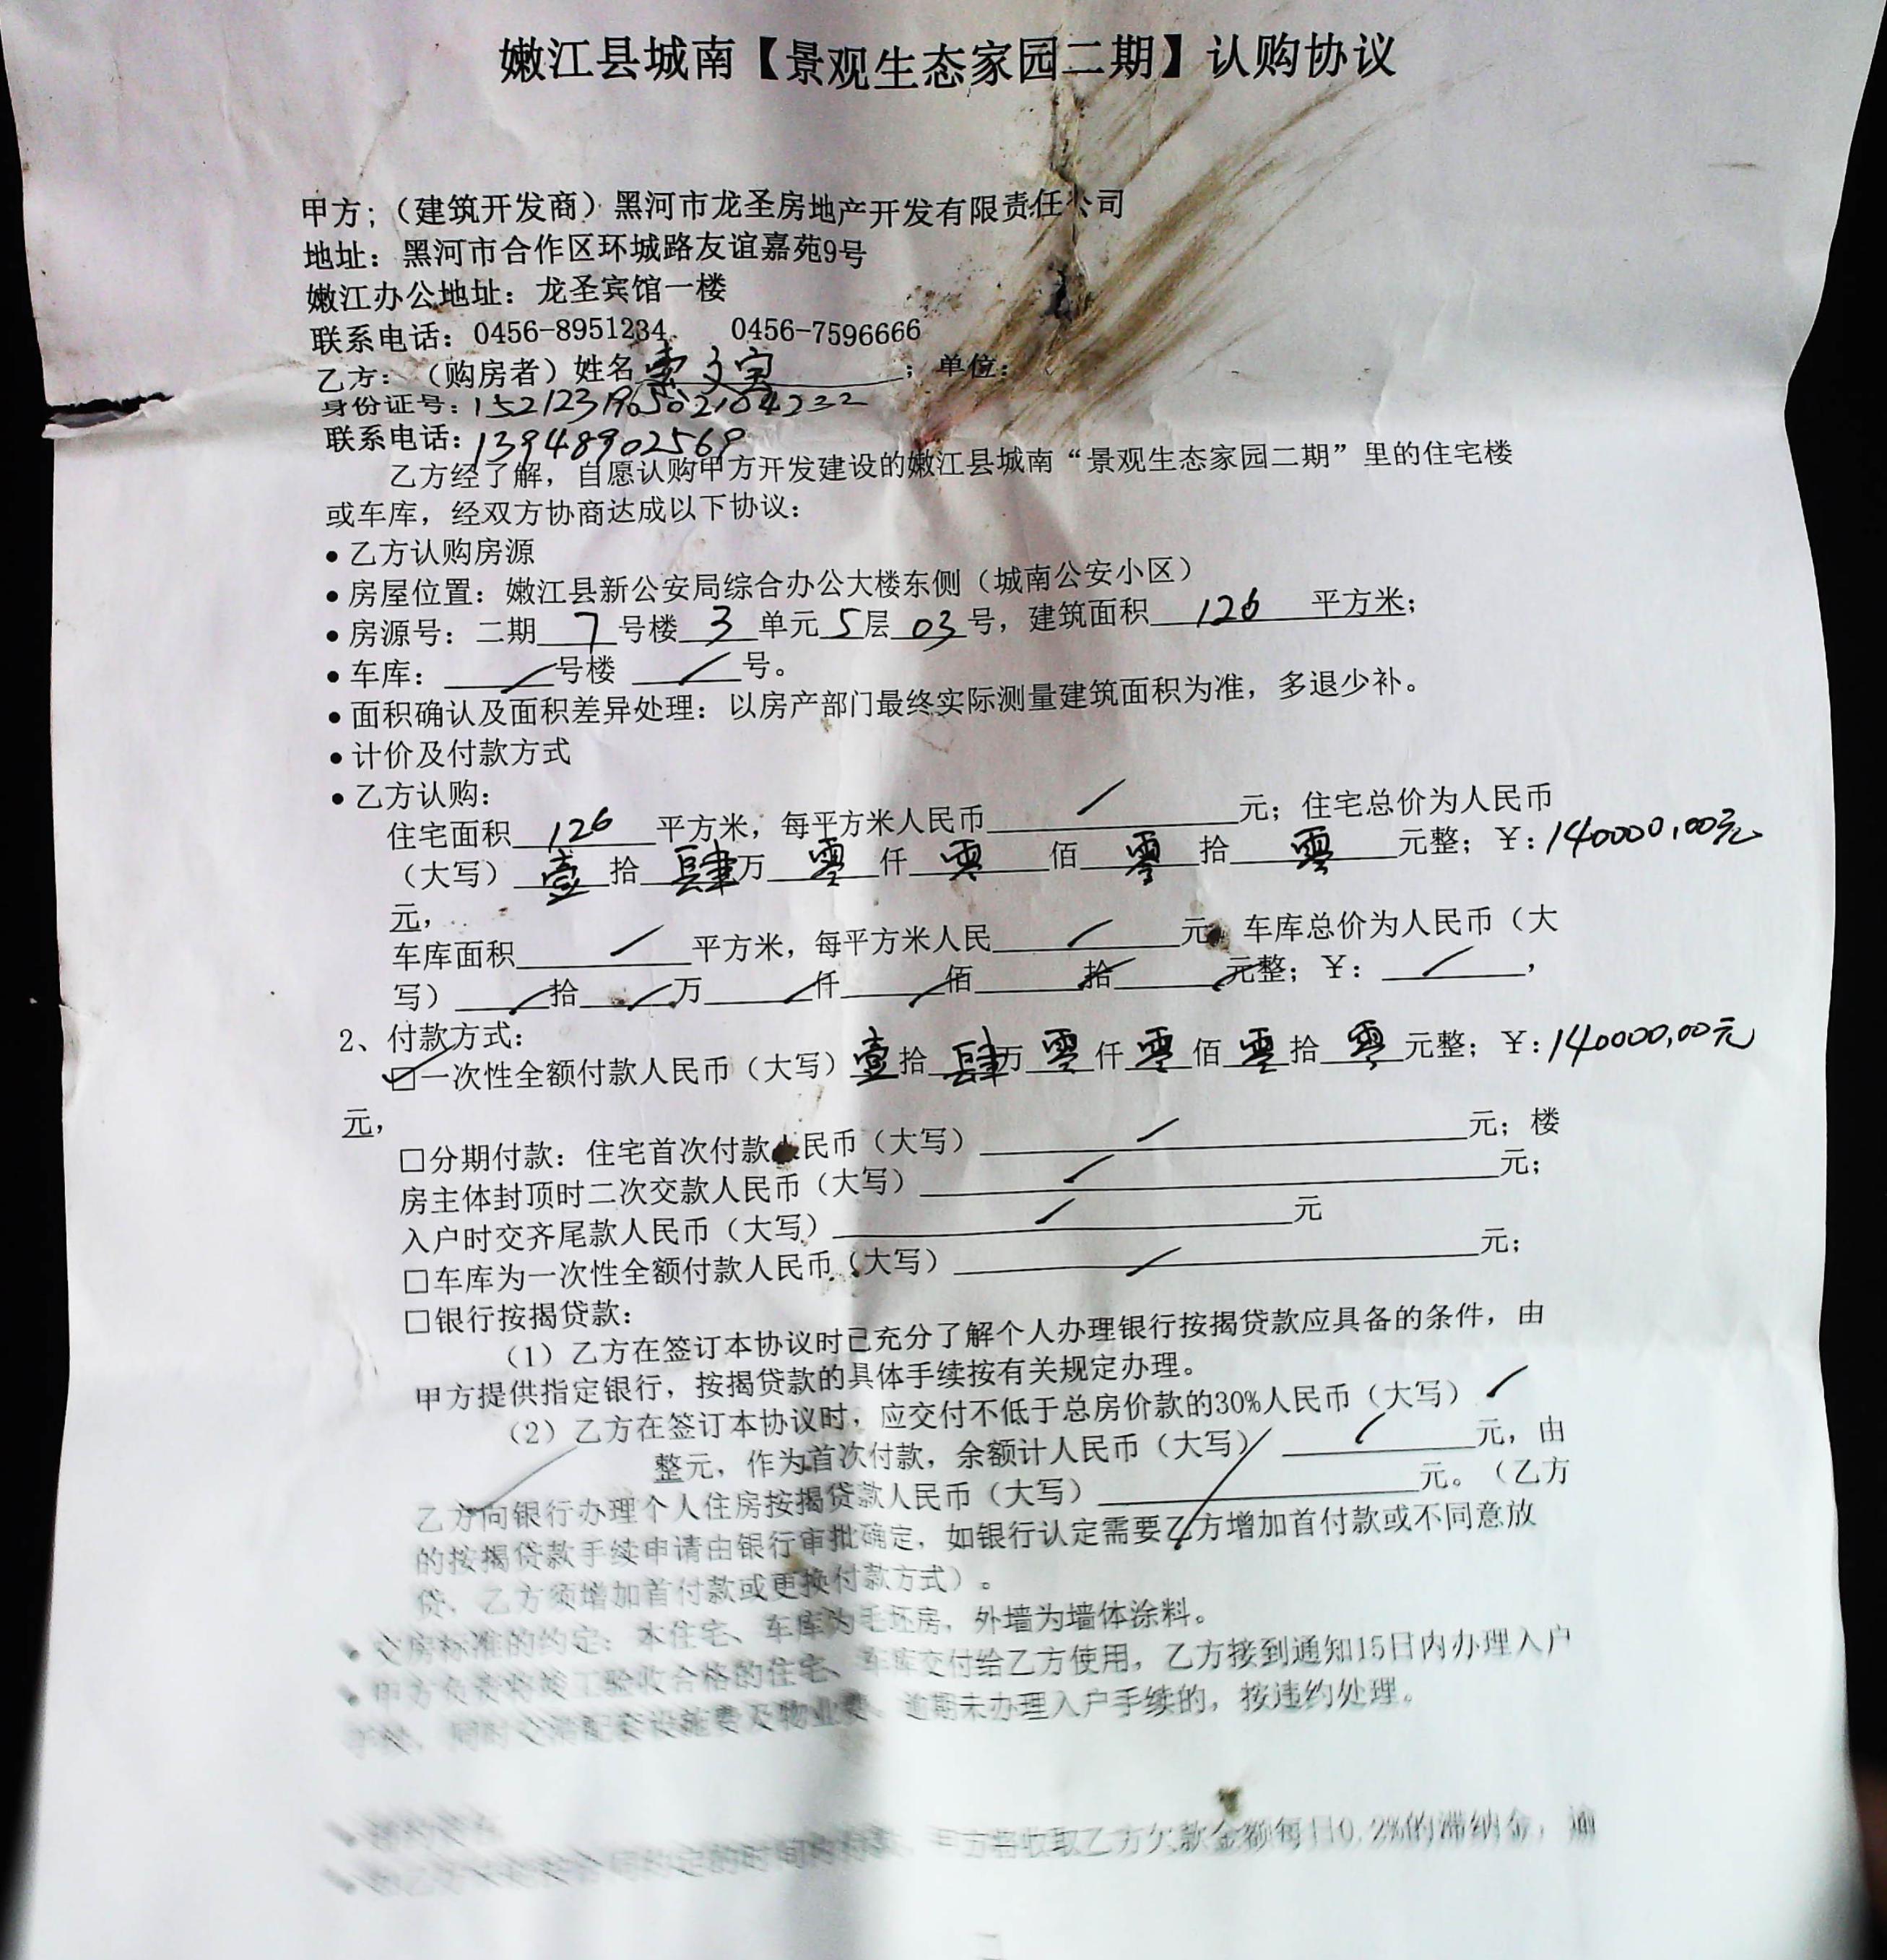 嫩江县城南【景观生态家园二期】认购协议
甲方;（建筑开发商）黑河市龙圣房地产开发有限责任公司
地址：黑河市合作区环城路友谊嘉苑9号
嫩江办公地址：龙圣宾馆一楼
联系电话：0456-8951234　0456-7596666
乙方：（购房者）姓名 文宝 ；单位：
身份证号：152123196502104232
联系电话：13948902569
乙方经了解，自愿认购甲方开发建设的嫩江县城南“景观生态家园二期”里的住宅楼
或车库，经双方协商达成以下协议：
• 乙方认购房源
• 房屋位置：嫩江县新公安局综合办公大楼东侧（城南公安小区）
• 房源号：二期 7 号楼 3 单元 5 层 03 号，建筑面积 126 平方米；
• 车库： / 号楼 / 号。
• 面积确认及面积差异处理：以房产部门最终实际测量建筑面积为准，多退少补。
• 计价及付款方式
• 乙方认购：
住宅面积 126 平方米，每平方米人民币 / 元；住宅总价为人民币
（大写） 壹 拾 肆 万 零 仟 零 佰 零 拾 零 元整；￥：140000.00元
元，
车库面积 / 平方米，每平方米人民 / 元 车库总价为人民币（大
写） / 拾 / 万 / 仟 / 佰 / 拾 / 元整；￥： / ，
2、付款方式：
☑一次性全额付款人民币（大写） 壹 拾 肆 万 零 仟 零 佰 零 拾 零 元整；￥：140000.00元
元，
□分期付款：住宅首次付款人民币（大写） / 元；楼
房主体封顶时二次交款人民币（大写） / 元；
入户时交齐尾款人民币（大写） / 元
□车库为一次性全额付款人民币（大写） / 元；
□银行按揭贷款：
（1）乙方在签订本协议时已充分了解个人办理银行按揭贷款应具备的条件，由
甲方提供指定银行，按揭贷款的具体手续按有关规定办理。
（2）乙方在签订本协议时，应交付不低于总房价款的30%人民币（大写） /
整元，作为首次付款，余额计人民币（大写） / 元，由
乙方向银行办理个人住房按揭贷款人民币（大写） 元。（乙方
的按揭贷款手续申请由银行审批确定，如银行认定需要乙方增加首付款或不同意放
贷，乙方须增加首付款或更换付款方式）。
• 交房标准的约定：本住宅、车库为毛坯房，外墙为墙体涂料。
• 甲方负责将竣工验收合格的住宅、车库交付给乙方使用，乙方接到通知15日内办理入户
手续，同时交清配套设施费及物业费，逾期未办理入户手续的，按违约处理。
甲方将收取乙方欠款金额每日0.2%的滞纳金，逾